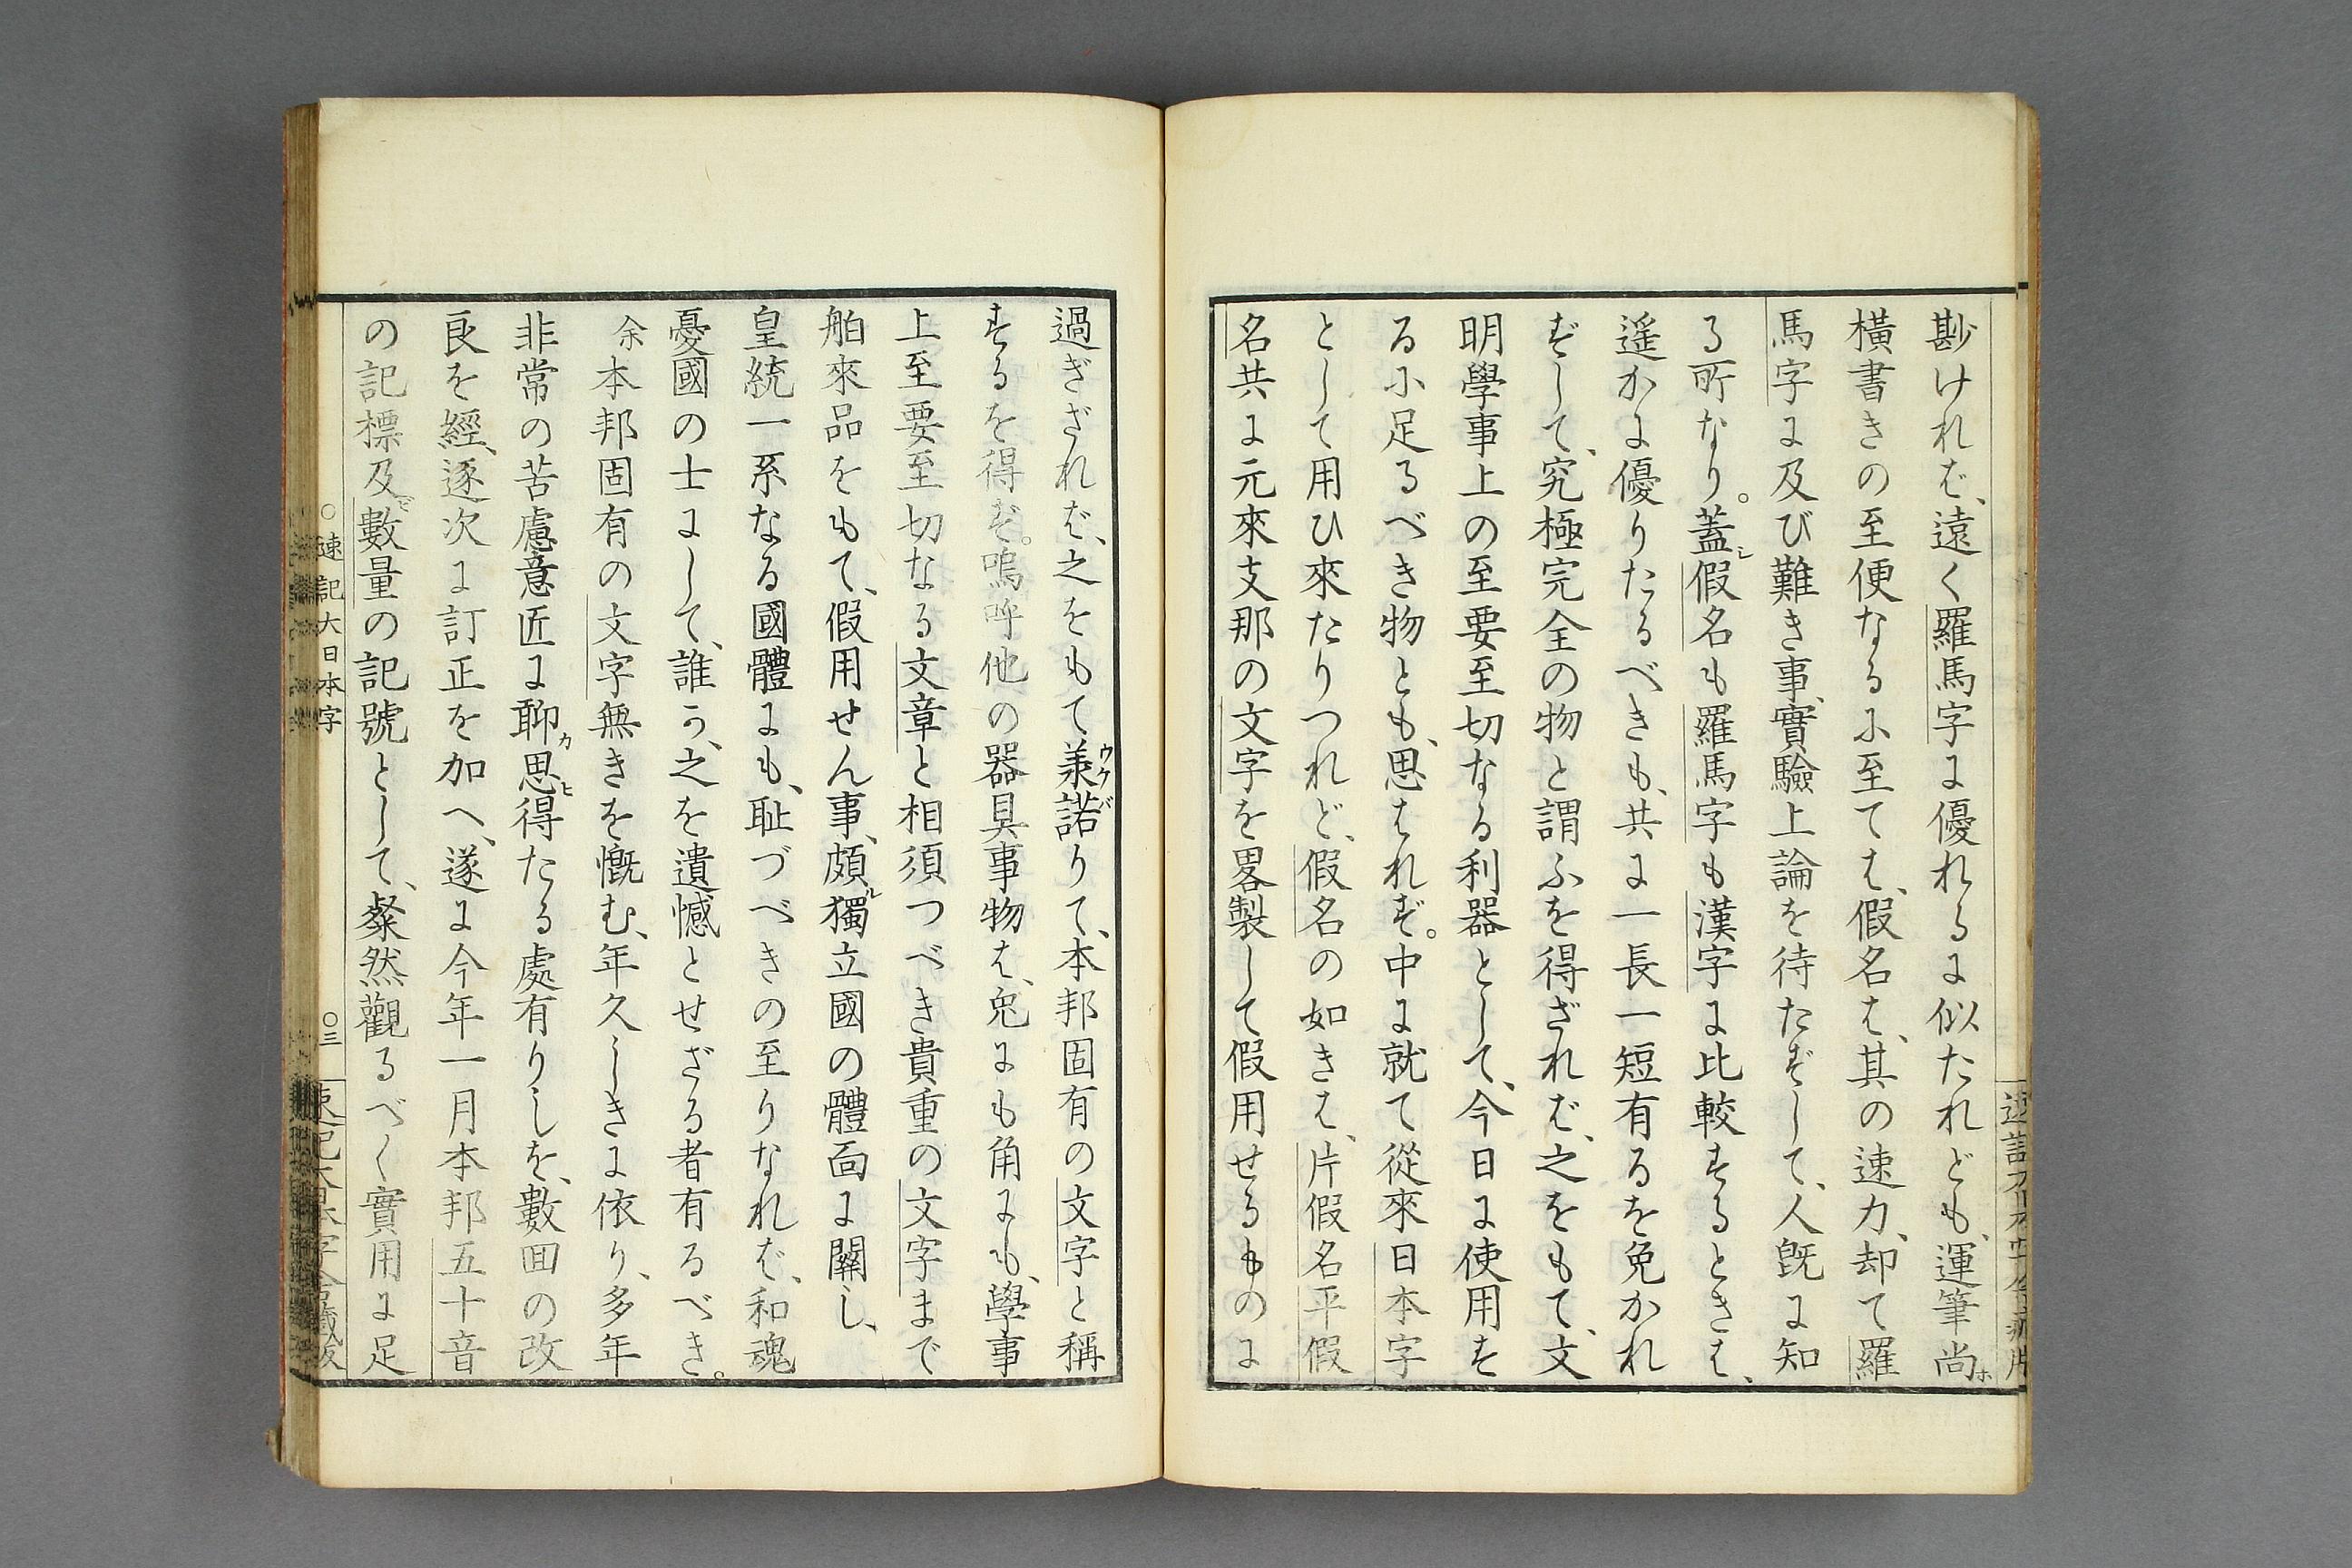 尠けれバ、遠く羅馬字に優れるに似たれども、運筆尚ホ
橫書きの至便なるに至てハ、假名ハ、其の速力、却て羅
馬字に及び難き事、實驗上論を待たずして、人既に知
る所なり。蓋シ假名も羅馬字も漢字に比較するときハ、
遥かに優りたるべきも、共に一長一短有るを免かれ
ずして、究極完全の物と謂ふを得ざれバ、之をもて、文
明學事上の至要至切なる利器として、今日に使用す
るに足るべき物とも、思はれず。中に就て從來日本字
として用ひ來たりつれど、假名の如きハ、片假名平假
名共に元來支那の文字を畧製して假用せるものに
過ぎざれバ、之をもて羕諾りて、本邦固有の文字と稱
するを得ず。嗚呼他の器具事物ハ、兎にも角にも、學事
上至要至切なる文章と相須つべき貴重の文字まで
舶來品をもて、假用せん事、頗ル獨立國の體面に關し、
皇統一系なる國體にも、耻づべきの至りなれバ、和魂
憂國の士にして、誰か、之を遺憾とせざる者有るべき。
余本邦固有の文字無きを慨む、年久しきに依り、多年
非常の苦慮意匠に聊カ思ヒ得たる處有りしを、數回の改
良を經、逐次に訂正を加へ、遂に今年一月本邦五十音
の記標及ビ數量の記號として、粲然觀るべく實用に足
○速記大日本字
○三